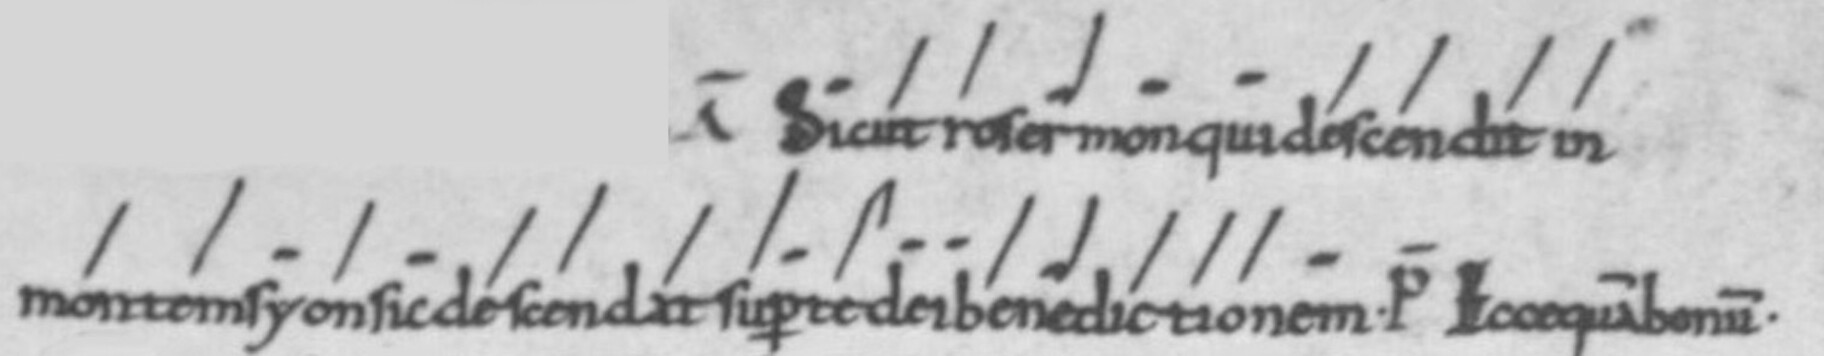 Sicut ros ermon qui descendit in
montem syon sic descendat sup te dei benedictionem · P̄ Ecce quā bonū ·